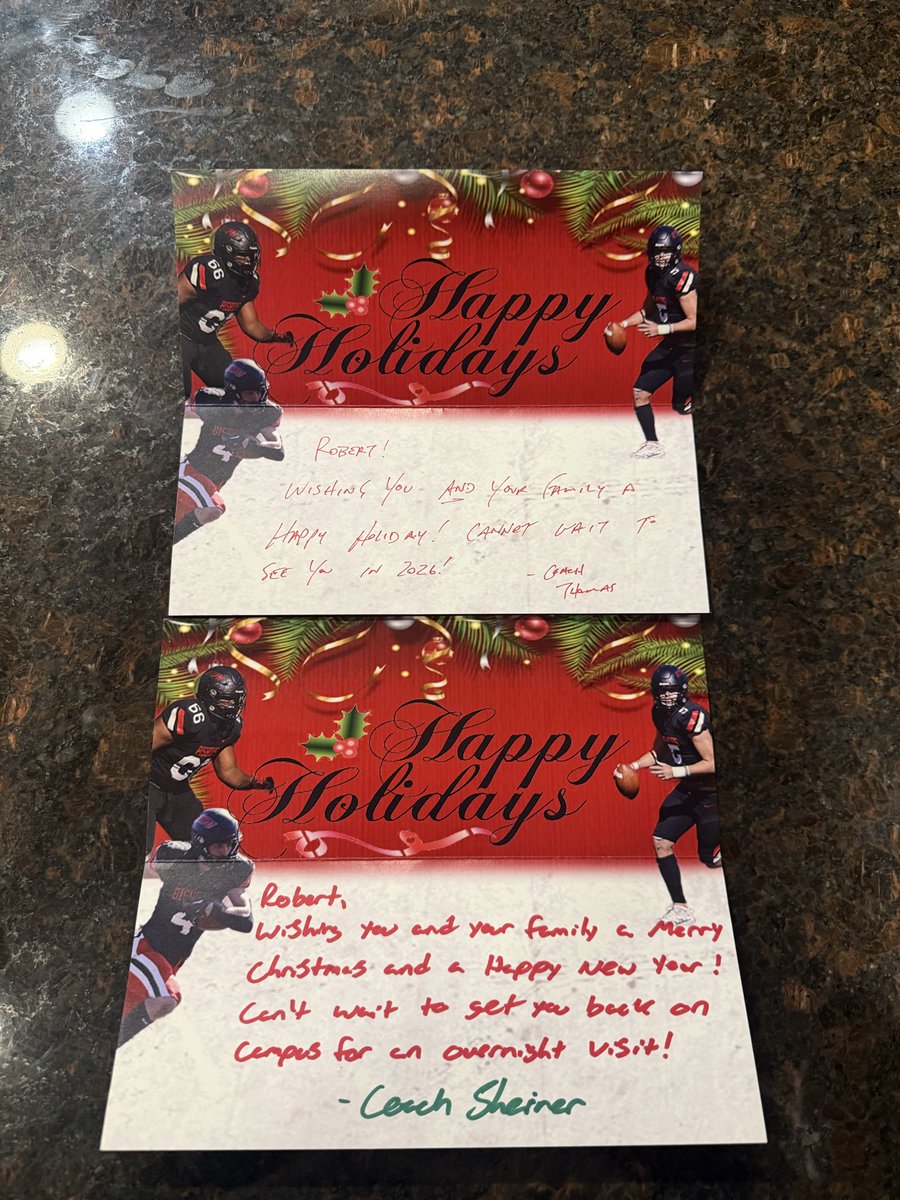 66
BISHOPS
5
Happy
Holidays
4
ROBERT!
WISHING YOU AND YOUR FAMILY A
HAPPY HOLIDAY! CANNOT WAIT TO
SEE YOU IN 2026!
- COACH
THOMAS
66
BISHOPS
5
Happy
Holidays
4
Robert,
Wishing you and your family a Merry
Christmas and a Happy New Year!
Can't wait to get you back on
campus for an overnight visit!
- Coach Sheiner